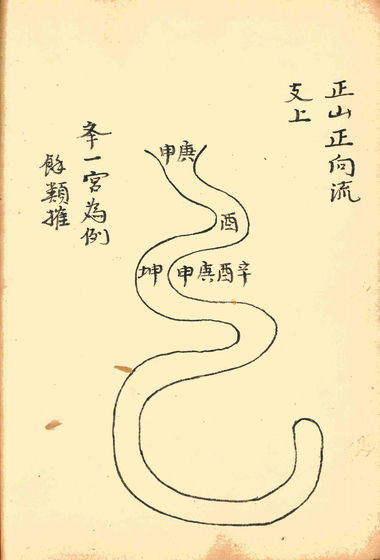 正山正向流
支上
申庚
酉
坤
申庚酉辛
举一宮為例
餘類推